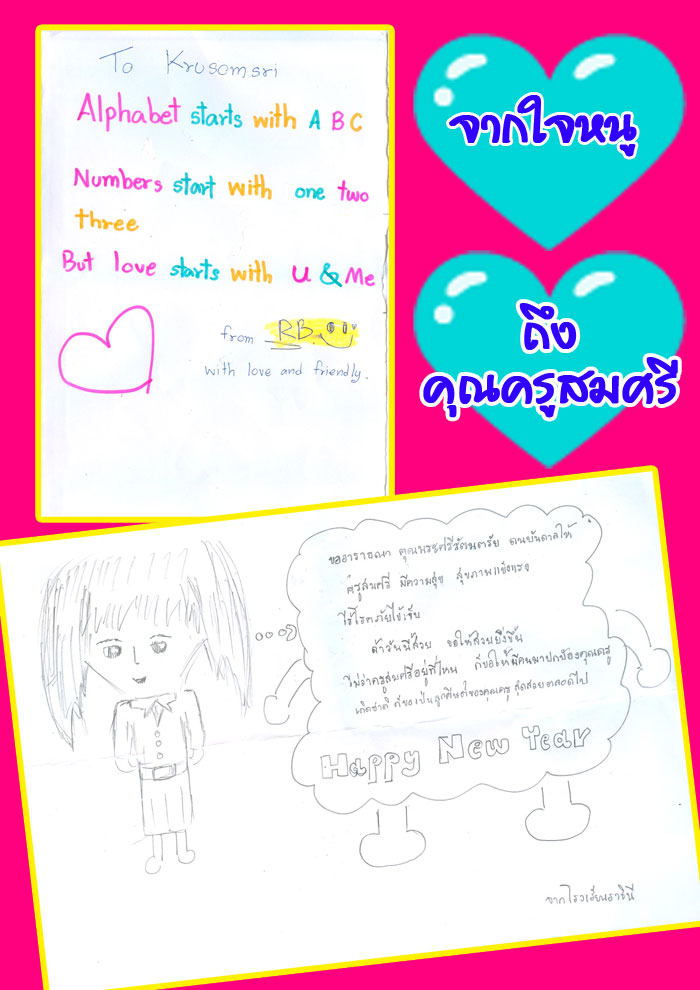 To Krusomsri
Alphabet starts with A B C
Numbers start with one two
three
But love starts with U & Me
from RB
with love and friendly.
จากใจหนู
ถึง
คุณครูสมศรี
ขออาราธนา คุณพระศรีรัตนตรัย ดลบันดาลให้
ครูสมศรี มีความสุข สุขภาพแข็งแรง
ไร้โรคภัยไข้เจ็บ
ถ้าวันนี้สวย ขอให้สวยยิ่งขึ้น
ไม่ว่าครูสมศรีอยู่ที่ไหน ก็ขอให้มีคนมาปกป้องคุณครู
ก็ขอเป็นลูกศิษย์ของคุณครู ตลอดไป
Happy New Year
จาก